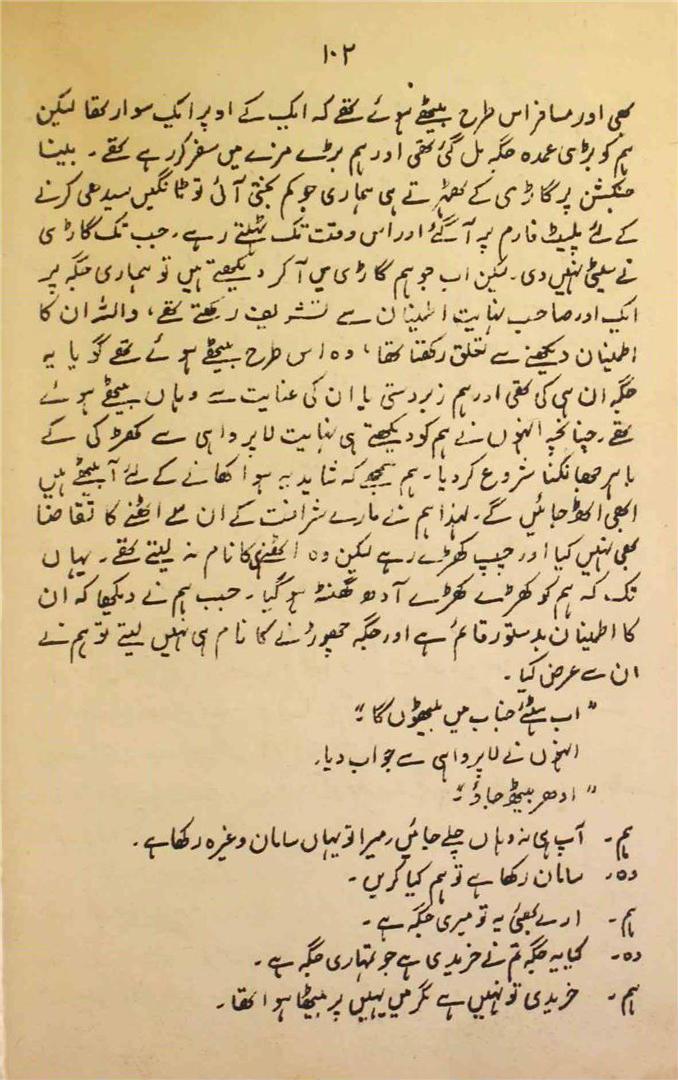 ۱۰۲
تھی اور مسافر اس طرح بیٹھے ہوئے تھے کہ ایک کے اوپر ایک سوار تھا لیکن
ہم کو بڑی عمدہ جگہ مل گئی تھی اور ہم بڑے مزے میں سفر کر رہے تھے۔ بینا
جنکشن پر گاڑی کے ٹھہرتے ہی ہماری جو کم بختی آئی تو ٹانگیں سیدھی کرنے
کے لئے پلیٹ فارم پر آ گئے اور اس وقت تک ٹہلتے رہے۔ جب تک گاڑی
نے سیٹی نہیں دی۔ لیکن اب جو ہم گاڑی میں آ کر دیکھتے ہیں تو ہماری جگہ پر
ایک اور صاحب نہایت اطمینان سے تشریف رکھتے تھے، واللہ ان کا
اطمینان دیکھنے سے تعلق رکھتا تھا، وہ اس طرح بیٹھے ہوئے تھے گویا یہ
جگہ ان ہی کی تھی اور ہم زبردستی یا ان کی عنایت سے وہاں بیٹھے ہوئے
تھے۔ چنانچہ انہوں نے ہم کو دیکھتے ہی نہایت لاپرواہی سے کھڑکی کے
باہر جھانکنا شروع کر دیا۔ ہم سمجھے کہ شاید یہ ہوا کھانے کے لئے آ بیٹھے ہیں
ابھی اٹھ جائیں گے۔ لہذا ہم نے مارے شرافت کے ان سے اٹھنے کا تقاضا
بھی نہیں کیا اور چپ کھڑے رہے لیکن وہ اٹھنے کا نام نہ لیتے تھے۔ یہاں
تک کہ ہم کو کھڑے کھڑے آدھ گھنٹہ ہو گیا۔ جب ہم نے دیکھا کہ ان
کا اطمینان بدستور قائم ہے اور جگہ چھوڑنے کا نام ہی نہیں لیتے تو ہم نے
ان سے عرض کیا۔
"اب ہٹئے جناب میں بیٹھوں گا"۔
انہوں نے لاپرواہی سے جواب دیا۔
"ادھر بیٹھ جاؤ"۔
ہم۔ آپ ہی نہ وہاں چلے جائیں، میرا تو یہاں سامان وغیرہ رکھا ہے۔
وہ۔ سامان رکھا ہے تو ہم کیا کریں۔
ہم۔ ارے بھئی یہ تو میری جگہ ہے۔
وہ۔ کیا یہ جگہ تم نے خریدی ہے جو تمہاری جگہ ہے۔
ہم۔ خریدی تو نہیں ہے مگر میں یہیں پر بیٹھا ہوا تھا۔